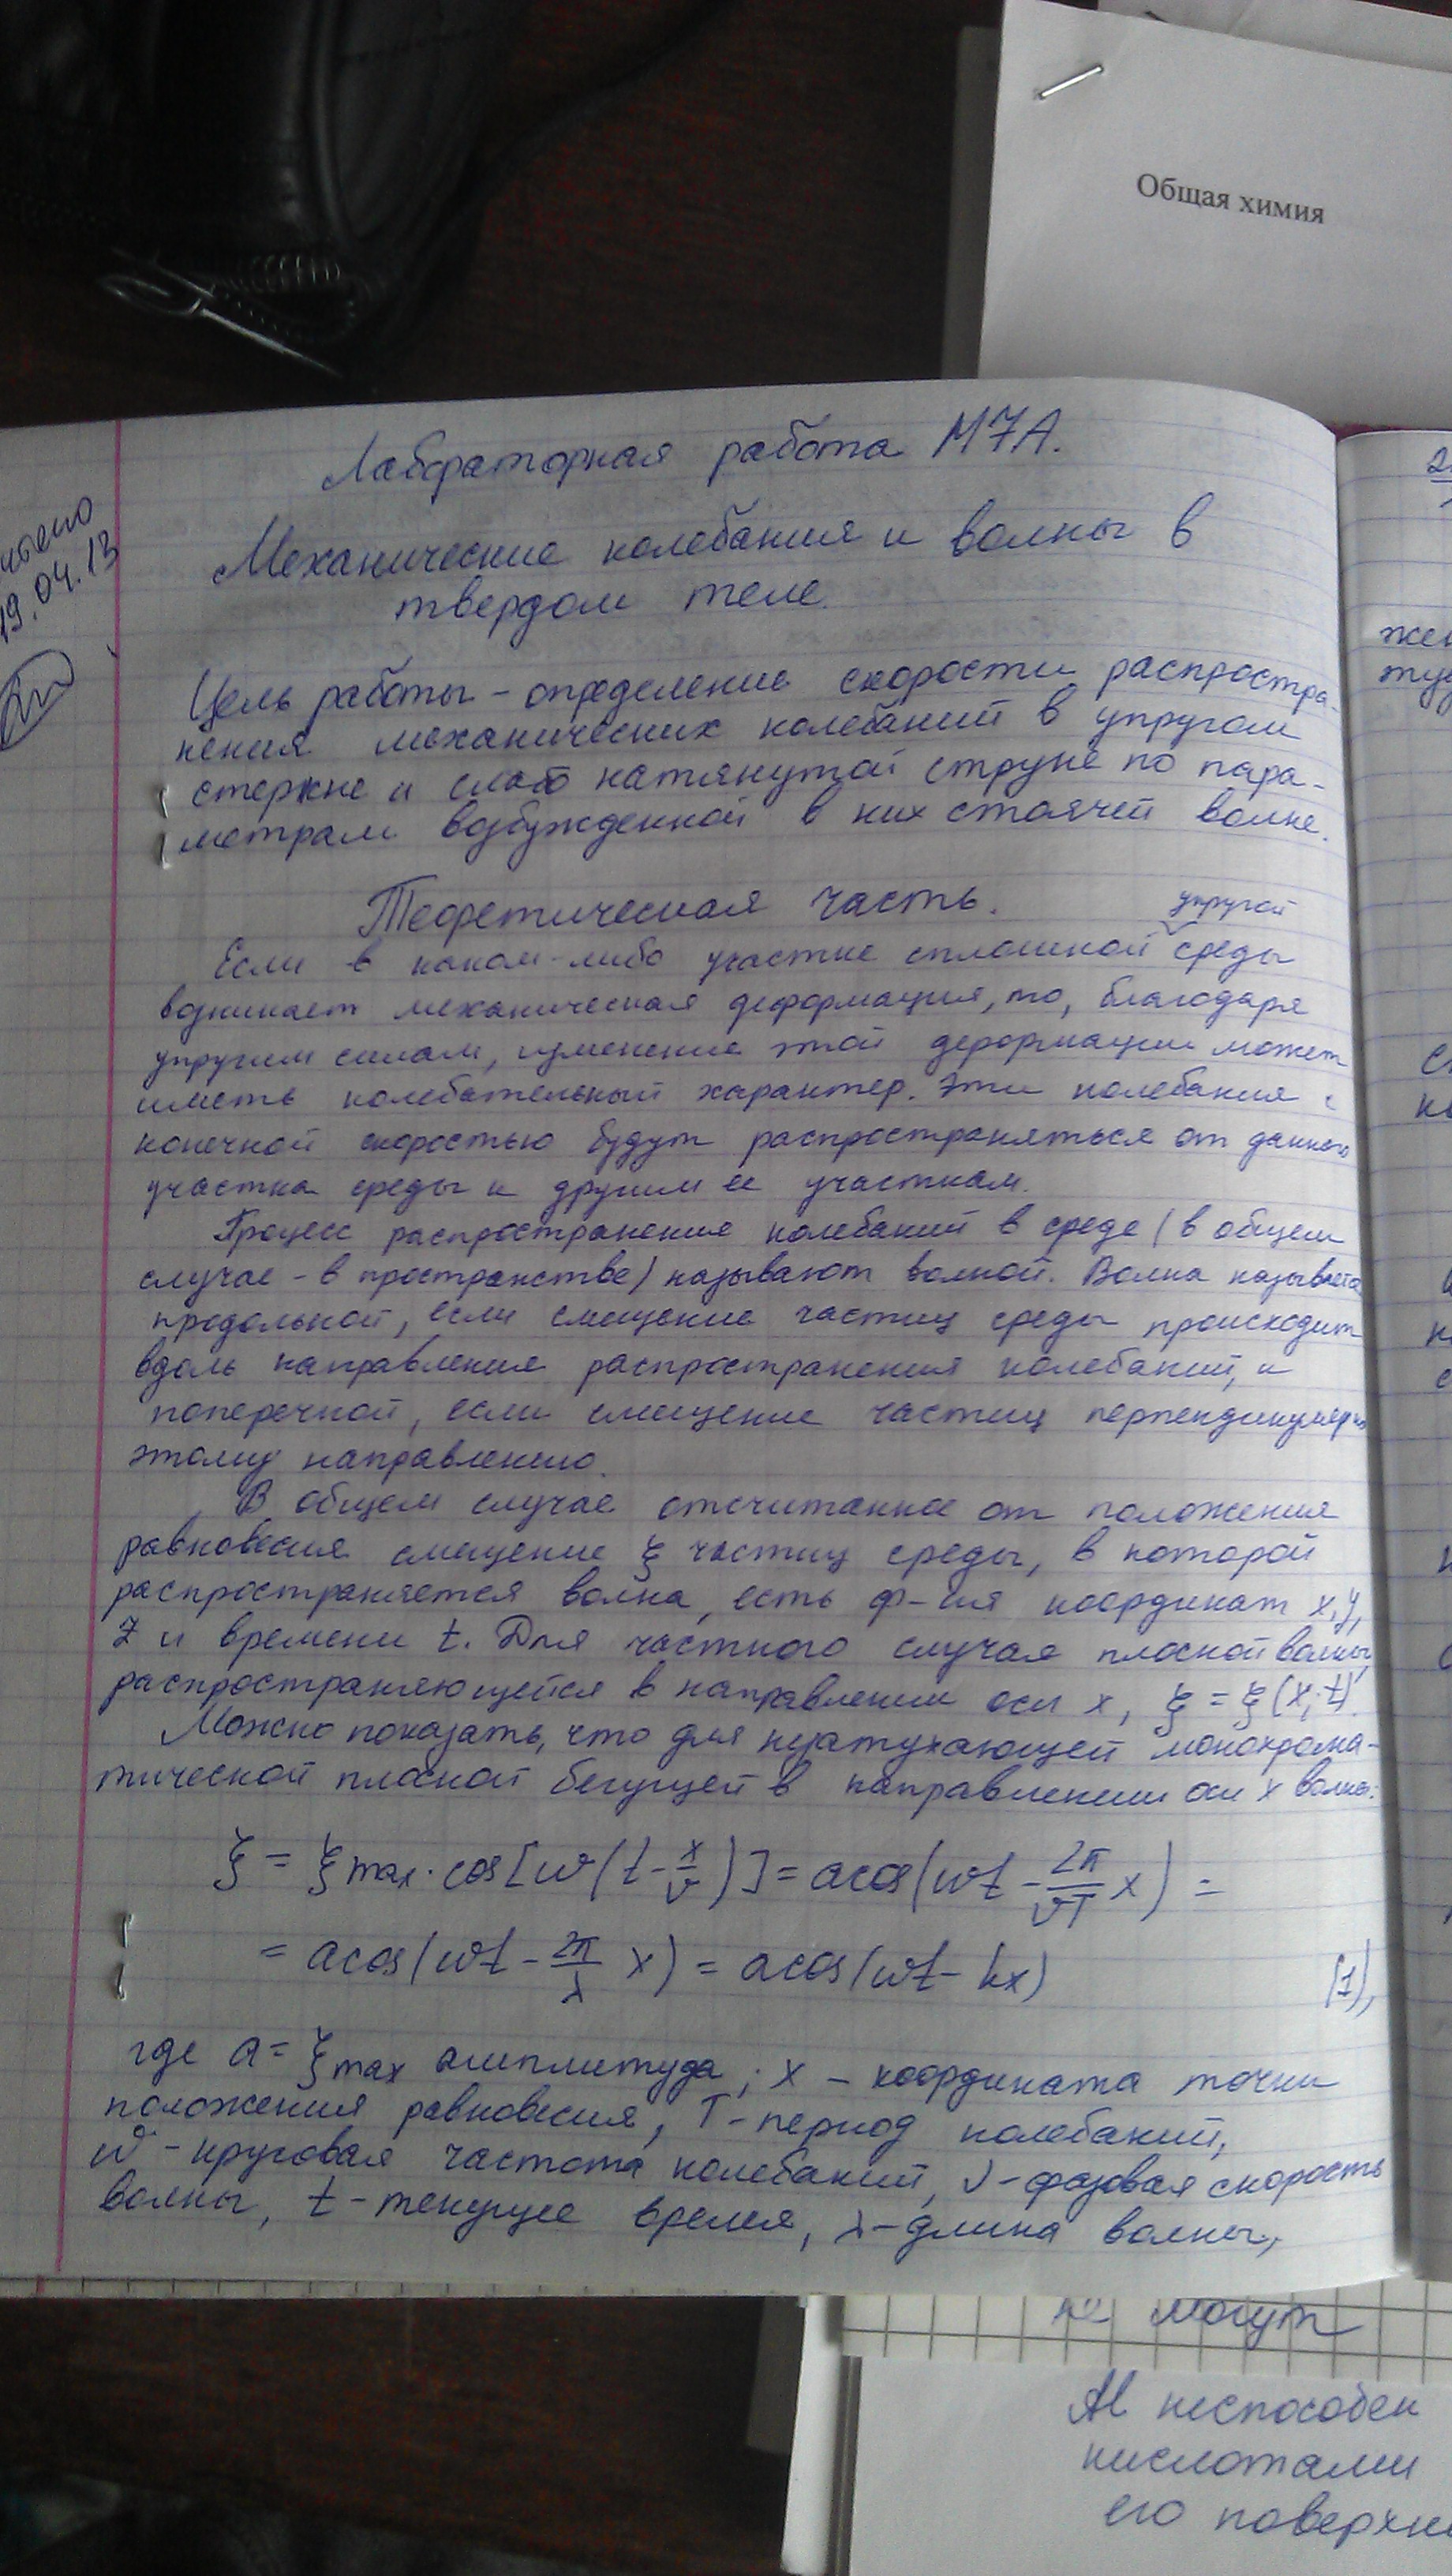 Общая химия
Лабораторная работа М7А.
19.04.13
Механические колебания и волны в
твердом теле.
Цель работы – определение скорости распростра-
нения механических колебаний в упругом
стержне и слабо натянутой струне по пара-
метрам возбужденной в них стоячей волне.
Теоретическая часть.
упругой
Если в каком-либо участке сплошной среды
возникает механическая деформация, то, благодаря
упругим силам, изменение этой деформации может
иметь колебательный характер. Эти колебания с
конечной скоростью будут распространяться от данного
участка среды к другим ее участкам.
Процесс распространения колебаний в среде (в общем
случае - в пространстве) называют волной. Волна называется
продольной, если смещение частиц среды происходит
вдоль направления распространения колебаний, и
поперечной, если смещение частиц перпендикулярно
этому направлению.
В общем случае отсчитанное от положения
равновесия смещение ξ частиц среды, в которой
распространяется волна, есть ф-ия координат x, y,
z и времени t. Для частного случая плоской волны,
распространяющейся в направлении оси x, ξ = ξ(x; t).
Можно показать, что для незатухающей монохрома-
тической плоской бегущей в направлении оси x волны:
ξ = ξmax · cos[ω(t - x/v)] = acos(ωt - 2π/vT x) =
= acos(ωt - 2π/λ x) = acos(ωt - kx) (1),
где a = ξmax амплитуда; x – координата точки
положения равновесия, T - период колебаний,
ω - круговая частота колебаний, v - фазовая скорость
волны, t - текущее время, λ - длина волны,
не могут
Al неспособен
кислотами
его поверхн